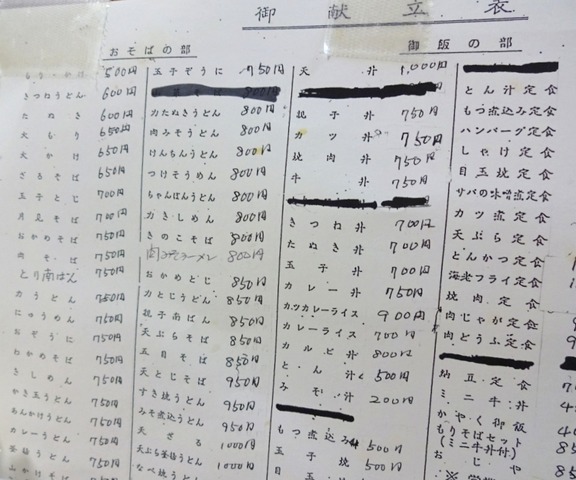 御献立表
おそばの部
もり・かけ 500円
きつねうどん 600円
たぬき 600円
大もり 650円
大かけ 650円
ざるそば 650円
玉子とじ 700円
月見そば 700円
おかめそば 750円
肉そば 750円
とり南ばん 750円
力うどん 750円
にゅうめん 750円
おぞうに 750円
わかめそば 750円
きしめん 750円
かき玉うどん 750円
あんかけうどん 750円
カレーうどん 750円
釜揚うどん 750円
玉子ぞうに 750円
力たぬきうどん 800円
肉みそうどん 800円
けんちんうどん 800円
つけそうめん 800円
ちゃんぽんうどん 800円
力きしめん 800円
きのこそば 800円
肉みそラーメン 800円
おかめとじ 850円
力とじうどん 850円
親子南ばん 850円
天ぷらそば 850円
五目そば 850円
天とじそば 950円
すき焼うどん 950円
みそ煮込うどん 950円
天ざる 1000円
天ぷら釜揚うどん 1000円
なべ焼うどん 1000円
御飯の部
天丼 1,000円
親子丼 750円
カツ丼 750円
焼肉丼 750円
牛丼 750円
きつね丼 700円
たぬき丼 700円
玉子丼 700円
カレー丼 750円
カツカレーライス 900円
カレーライス 700円
カルビ丼 800円
とん汁 500円
みそ汁 200円
もつ煮込み 500円
玉子焼 500円
目玉
とん汁定食
もつ煮込み定食
ハンバーグ定食
しゃけ定食
目玉焼定食
サバの味噌煮定食
カツ煮定食
天ぷら定食
とんかつ定食
海老フライ定食
焼肉定食
肉じゃが定食
肉どうふ定食
納豆定食
ミニ牛丼
かやく御飯
もりそばセット
(ミニ牛丼付)
おじや